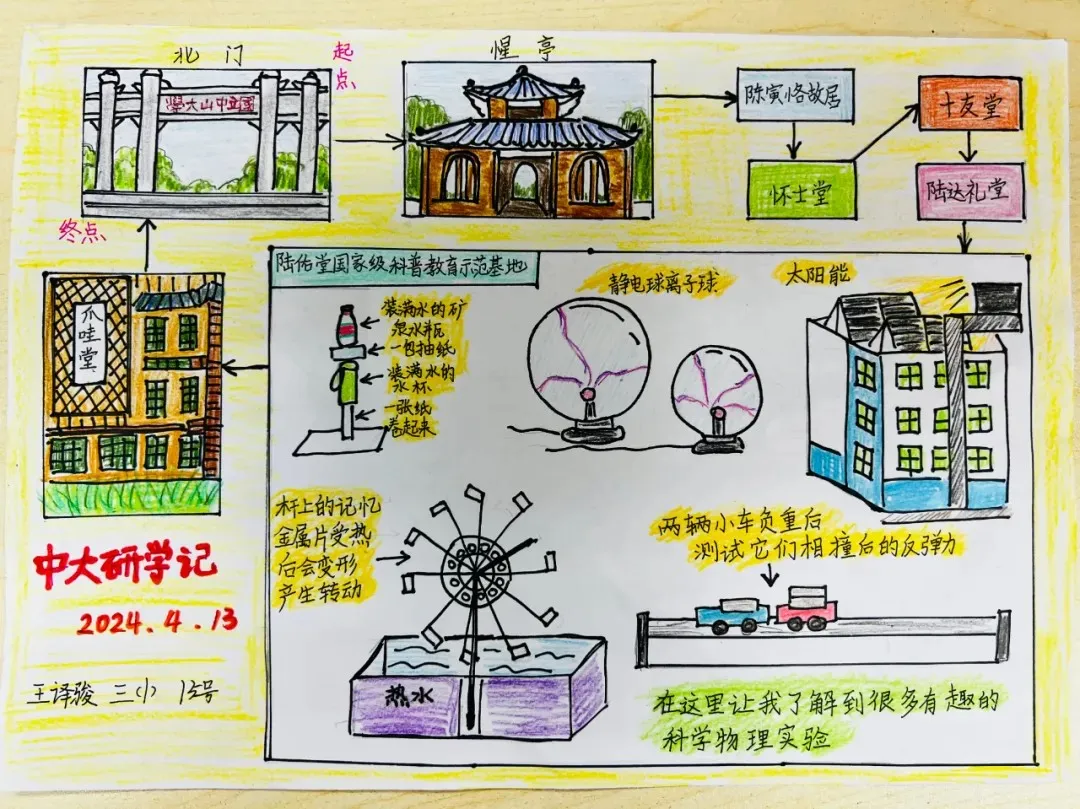 北门
起点
學大山中立國
惺亭
陈寅恪故居
怀士堂
十友堂
陆达礼堂
终点
爪哇堂
陆佑堂国家级科普教育示范基地
装满水的矿
泉水瓶
一包抽纸
装满水的
水杯
一张纸
卷起来
静电球离子球
太阳能
杆上的记忆
金属片受热
后会变形
产生转动
热水
两辆小车负重后
测试它们相撞后的反弹力
在这里让我了解到很多有趣的
科学物理实验
中大研学记
2024.4.13
王译骏 三 号